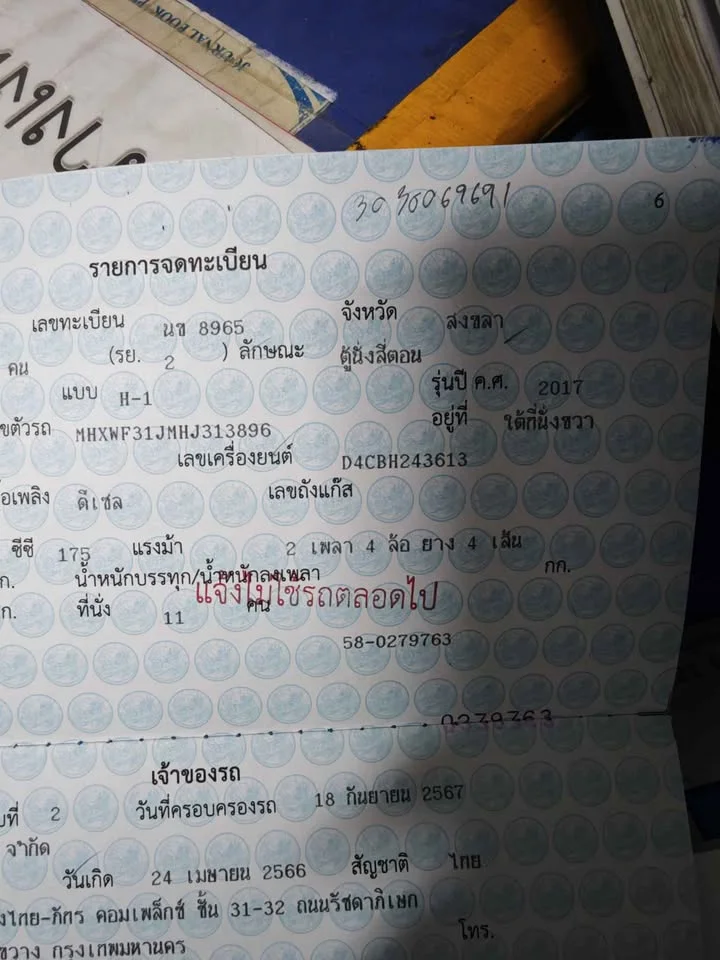 JOURNAL BOOK
3030069691
6
รายการจดทะเบียน
เลขทะเบียน นข 8965 จังหวัด สงขลา
คน (รย. 2 ) ลักษณะ ตู้นั่งสี่ตอน
แบบ H-1 รุ่นปี ค.ศ. 2017
ขตัวรถ MHXWF31JMHJ313896 อยู่ที่ ใต้ที่นั่งขวา
เลขเครื่องยนต์ D4CBH243613
อเพลิง ดีเซล เลขถังแก๊ส
ซีซี 175 แรงม้า 2 เพลา 4 ล้อ ยาง 4 เส้น
ก. น้ำหนักบรรทุก/น้ำหนักลงเพลา กก.
แจ้งไม่ใช้รถตลอดไป
ก. ที่นั่ง 11 คน
58-0279763
0339363
เจ้าของรถ
บที่ 2 วันที่ครอบครองรถ 18 กันยายน 2567
จำกัด
วันเกิด 24 เมษายน 2566 สัญชาติ ไทย
งไทย-ภัทร คอมเพล็กซ์ ชั้น 31-32 ถนนรัชดาภิเษก
ขวาง กรุงเทพมหานคร โทร.